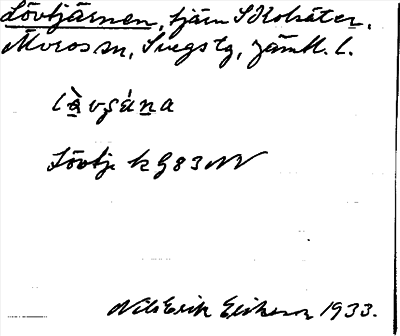 Lövtjärnen, tjärn S Kolsäter,
Älvros sn, Svegs tg, Jämtl. l.
Lövtj. k G83 NV
Nils Erik Eriksson 1933.